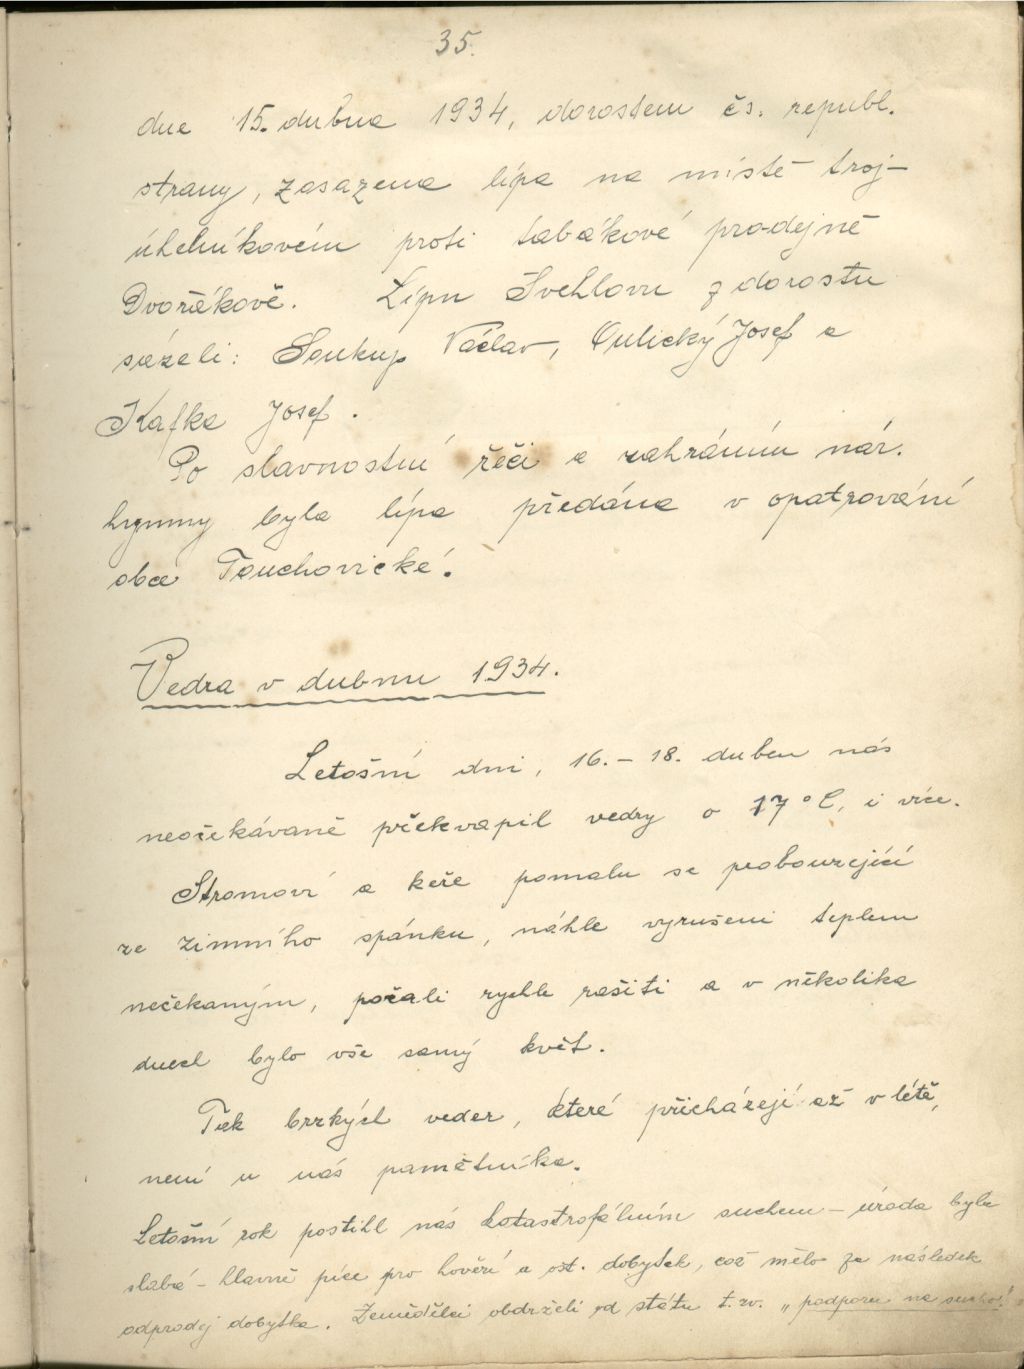 35.
dne 15. dubna 1934, dorostem čs. republ.
strany, zasazena lípa na místě troj-
úhelníkovém proti tabákové prodejně
Dvořákově. Lípu Švehlovu z dorostu
sázeli: Soukup Václav, Culický Josef a
Kafka Josef.
Po slavnostní řeči a zahráním nár.
hymny byla lípa předána v opatrování
obce Touchovické.
Vedra v dubnu 1934.
Letošní dni, 16. – 18. duben nás
neočekávaně překvapil vedry o 17°C, i více.
Stromoví a keře pomalu se probouzející
ze zimního spánku, náhle vyrušeni teplem
nečekaným, počali rychle rašiti a v několika
dnech bylo vše samý květ.
Tak brzkých veder, které přicházejí až v létě,
není u nás pamětníka.
Letošní rok postihl nás katastrofálním suchem – úroda byla
slabá – hlavně píce pro hověží a ost. dobytek, což mělo za následek
odprodej dobytka. Zemědělci obdrželi od státu t. zv. „podporu na sucho."